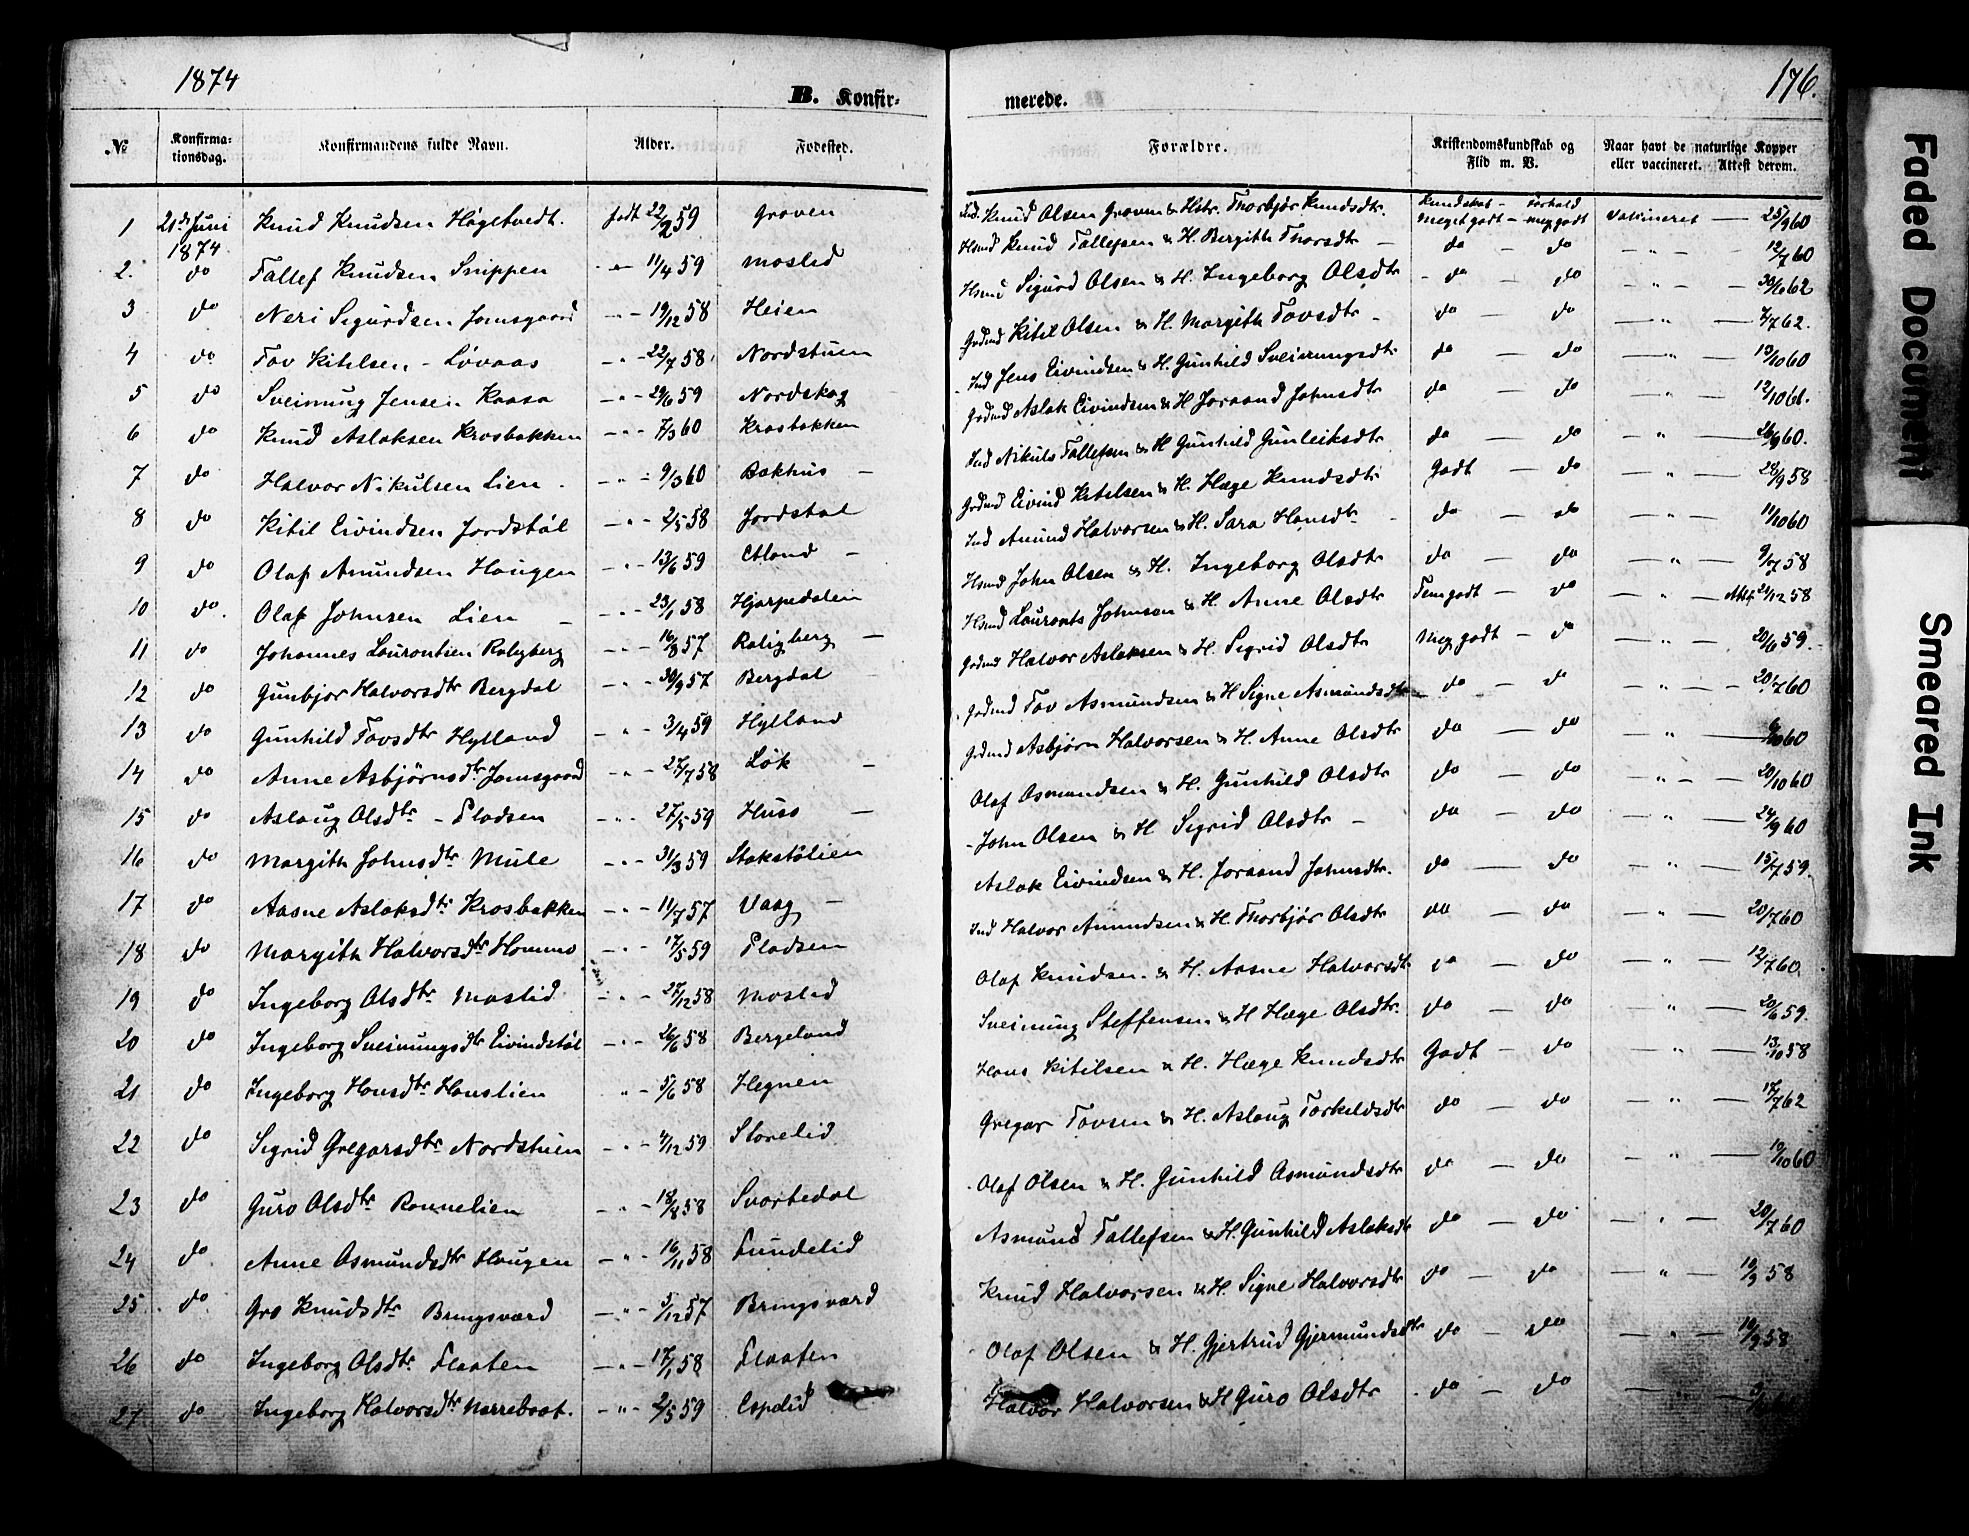 1874
B. Konfir-
merede.
176.
№ Konfirma-tionsdag. Konfirmandens fulde Navn. Alder. Fødested. Forældre. Kristendomskundskab og Flid m. V. Naar havt de naturlige Kopper eller vaccineret. Attest derom.
1 21de Juni 1874 Knud Knudsen Høgetvedt. født 22/2 59 Groven Ind. Knud Olsen Groven & Hstr. Thorbjør Knudsdtr. Kundskab meget godt - Forhold meg godt vaccineret — 25/9 60
2. do Tallef Knudsen Snippen — " — 11/4 59 Moslid Hsmd Knud Tallefsen & H. Bergith Thorsdtr — do — do — " — 12/7 60
3 do Neri Sigurdsen Jamsgaard — " — 19/12 58 Heien Hsmd Sigurd Olsen & H. Ingeborg Olsdtr - do — do — " — 30/10 62
4 do Tov Kitelsen - Løvaas — " — 22/7 58 Nordstuen Grdmd Kitil Olsen & H. Margith Tovsdtr - do — do — " — 7/7 62.
5 do Sveinung Jensen Kaasa — " — 29/6 59 Nordskog Ind Jens Eivindsen & H. Gunhild Sveinungsdtr do — do — " — 19/10 60
6 do Knud Aslaksen Krosbakken — " — 7/3 60 Krosbakken Grdmd Aslak Eivindsen & H Joraand Johnsdtr do — do — " — 12/10 61.
7 do Halvor Nikulsen Lien - — " — 9/3 60 Bakhus — Ind Nikuls Tallefsen & H Gunhild Gunleiksdtr do — do — " — 26/9 60.
8 do Kitil Eivindsen Jordstøl — " — 2/5 58 Jordstøl Grdmd Eivind Kitilsen & H. Hæge Knudsdtr Godt — do — " — 28/9 58
9 do Olaf Amundsen Haugen — " — 13/6 59 Ind Amund Halvorsen & H. Sara Hansdtr - do — do — " — 11/10 60
10 do. Olaf Johnsen Lien — — " — 23/1 58 Hjarpedalen Hsmd John Olsen & H. Ingeborg Olsdtr do — do — " — 9/7 58
11 do Johannes Laurantsen Raligberg — " — 16/8 57 Raligberg — Hsmd Laurants Johnsen & H. Anne Olsdtr Temgodt — do — " — 21/12 58
12 do Gunbjør Halvorsdtr Bergdal — " — 30/9 57 Bergdal Grdmd Halvor Aslaksen & H. Sigrid Olsdtr Meg godt — do — " — 20/6 59.
13 do Gunhild Tovsdtr Hylland — " — 3/4 59 Hylland Grdmd Tov Asmundsen & H Signe Asmundsdtr do — do — " — 20/7 60
14 do Anne Asbjørnsdtr Jamsgaard — " — 27/7 58 Løk — Grdmd Asbjørn Halvorsen & H. Anne Olsdtr do — do — " — 60
15 do Aslaug Olsdtr - Pladsen — " — 27/5 59 Huso — Olaf Osmundsen & H. Gunhild Olsdtr do — do — " — 20/10 60
16 do Margith Johnsdtr Mule — " — 31/3 59 Stokstølien John Olsen & H Sigrid Olsdtr — do — do — " — 24/9 60
17 do Aasne Aslaksdtr Krosbakken — " — 11/7 57 Vaag — Aslak Eivindsen & H. Joraand Johnsdtr. do — do — " — 15/7 59.
18 do Margith Halvorsdtr Hommo — " — 17/5 59 Pladsen Ind Halvor Amundsen & H. Thorbjør Olsdtr do — do — " — 20/7 60
19 do Ingeborg Olsdtr Moslid — " — 27/12 58 Moslid Olaf Knudsen & H. Aasne Halvorsdtr do — do — " — 12/7 60
20 do Ingeborg Sveinungsdtr Eivindstøl — " — 26/6 58 Bergeland Sveinung Steffensen & H Hæge Olsdtr. do — do — " — 20/6 59.
21 do Ingeborg Hansdtr Hanslien " — 5/6 58 Hegnen Hans Kitilsen & H. Hæge Knudsdtr Godt — do — " — 13/10 58
22 do Sigrid Gregarsdtr Nordstuen — " — 4/12 59 Storelid Gregar Tovsen & H. Aslaug Torkildsdtr do — do — " — 17/7 62
23 do Guro Olsdtr Ronnelien — " — 18/8 58 Svartedal Olaf Olsen & H. Gunhild Osmundsdtr do — do — " — 10/10 60
24 do Anne Osmundsdtr Haugen — " — 16/11 58 Lundelid Asmund Tallefsen & H. Gunhild Aslaksdtr do — do — " — 20/7 60
25 do Gro Knudsdtr Bringsværd — " — 5/12 57 Bringsværd Knud Halvorsen & H. Signe Halvorsdtr do — do — " — 10/9 58
26 do Ingeborg Olsdtr Flaaten — " — 17/1 58 Flaaten Olaf Olsen & H. Gjertrud Gjermundsdtr do — do — " — 10/9 58
27 do Ingeborg Halvorsdtr — " — 2/5 59 Espelid Halvor Halvorsen & H Guro Olsdtr - do — do
Faded Document
Smeared Ink